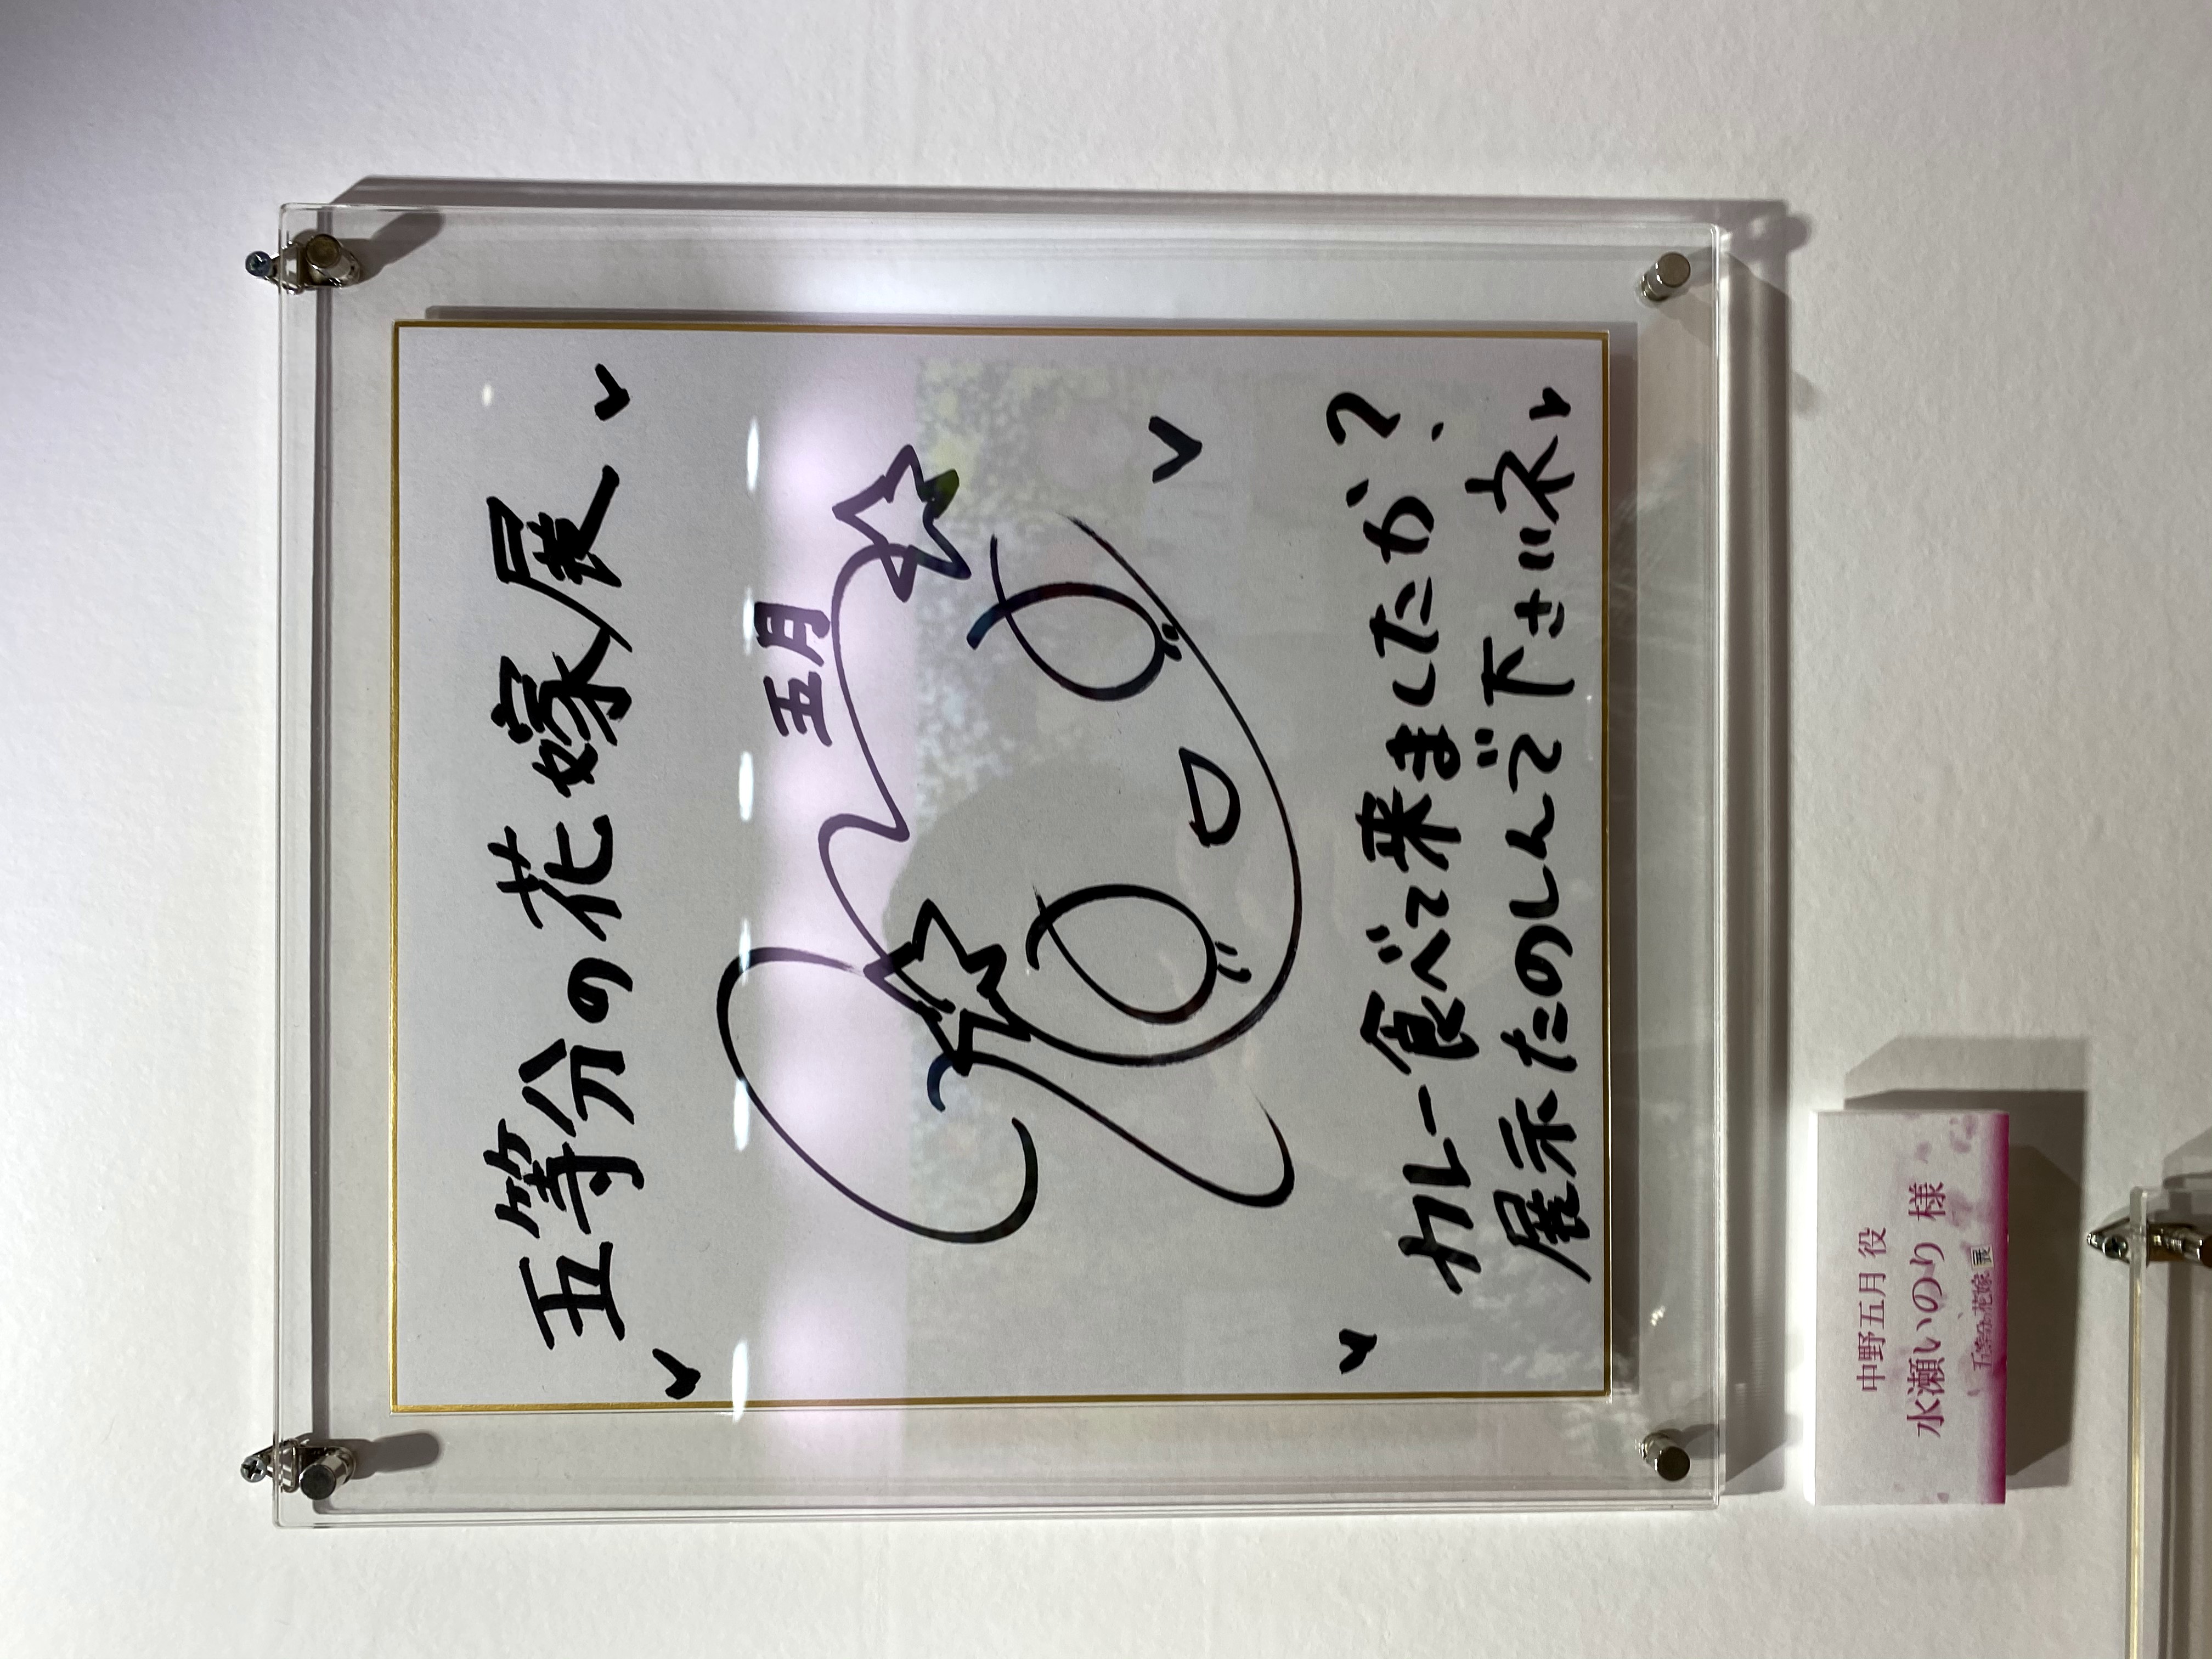 五等分の花嫁展
五月
カレー食べて来ましたか?
展示たのしんで下さいネ
中野五月 役
水瀬いのり 様
五等分の花嫁展